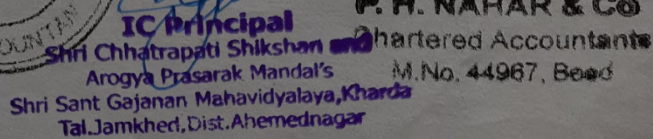 OUNTAN
IC Principal
Shri Chhatrapati Shikshan and
Arogya Prasarak Mandal's
Shri Sant Gajanan Mahavidyalaya,Kharda
Tal.Jamkhed,Dist.Ahemednagar
P. H. NAHAR & CO
Chartered Accountants
M.No. 44967, Beed